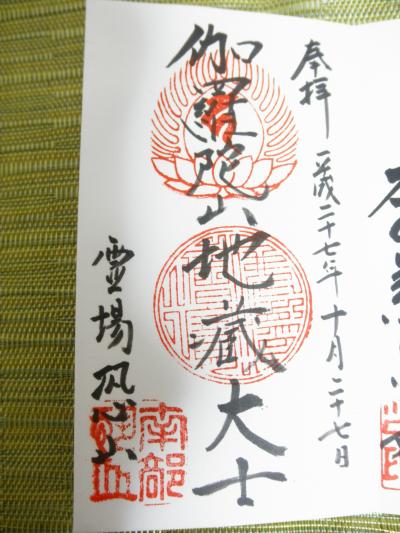 奉拝
平成二十七年十月二十七日
伽羅陀山地蔵大士
霊場恐山
南部